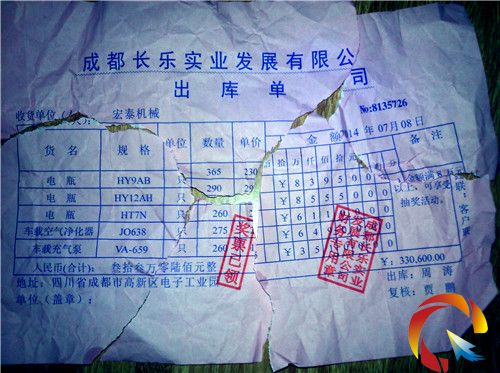 成都长乐实业发展有限公司
出库单
No:8135726
收货单位（人）： 宏泰机械
2014 年 07 月 08 日
货名 规格 单位 数量 单价 金额 备注
电瓶 HY9AB 只 365 230
电瓶 HY12AH 只 290
电瓶 HT7N 只 260
车载空气净化器 JO638 只 275
车载充气泵 VA-659 只 260
金额满 8 万元
以上，可享受
抽奖活动。
联：客户联
人民币(合计): 叁拾叁万零陆佰元整
¥：330,600.00
地址：四川省成都市高新区电子工业园
出库：周涛
单位（盖章）：
复核：贾鹏
奖票已领
成都长乐实业
发展有限公司
财务专用章